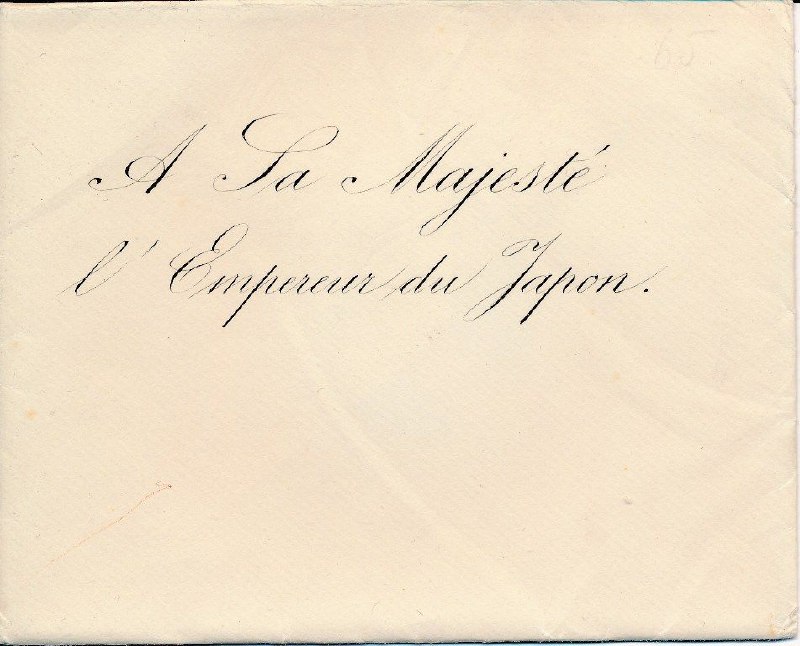 A Sa Majesté
l'Empereur du Japon.
65.